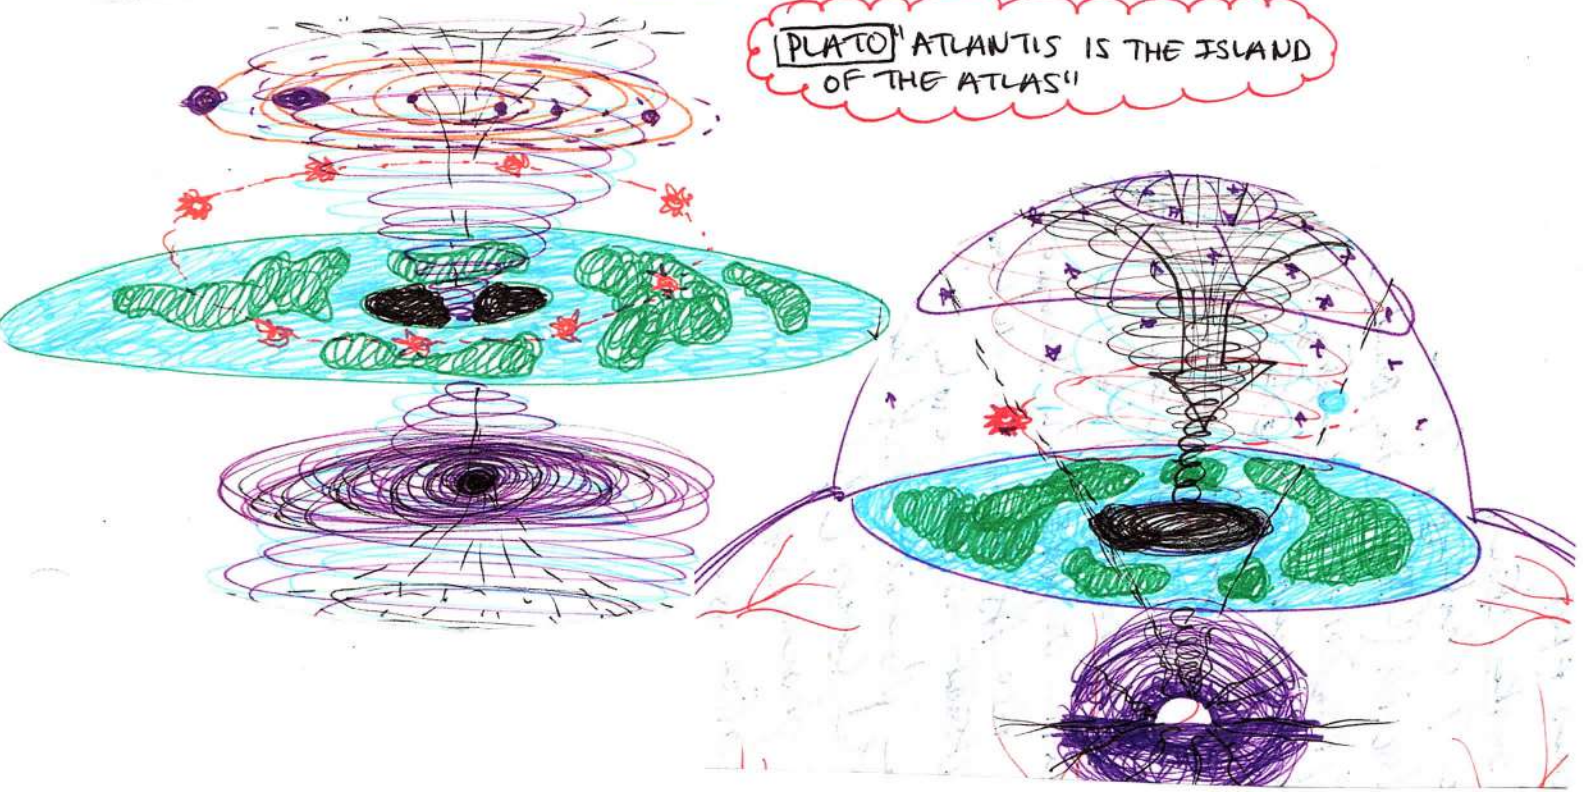 PLATO "ATLANTIS IS THE ISLAND
OF THE ATLAS"